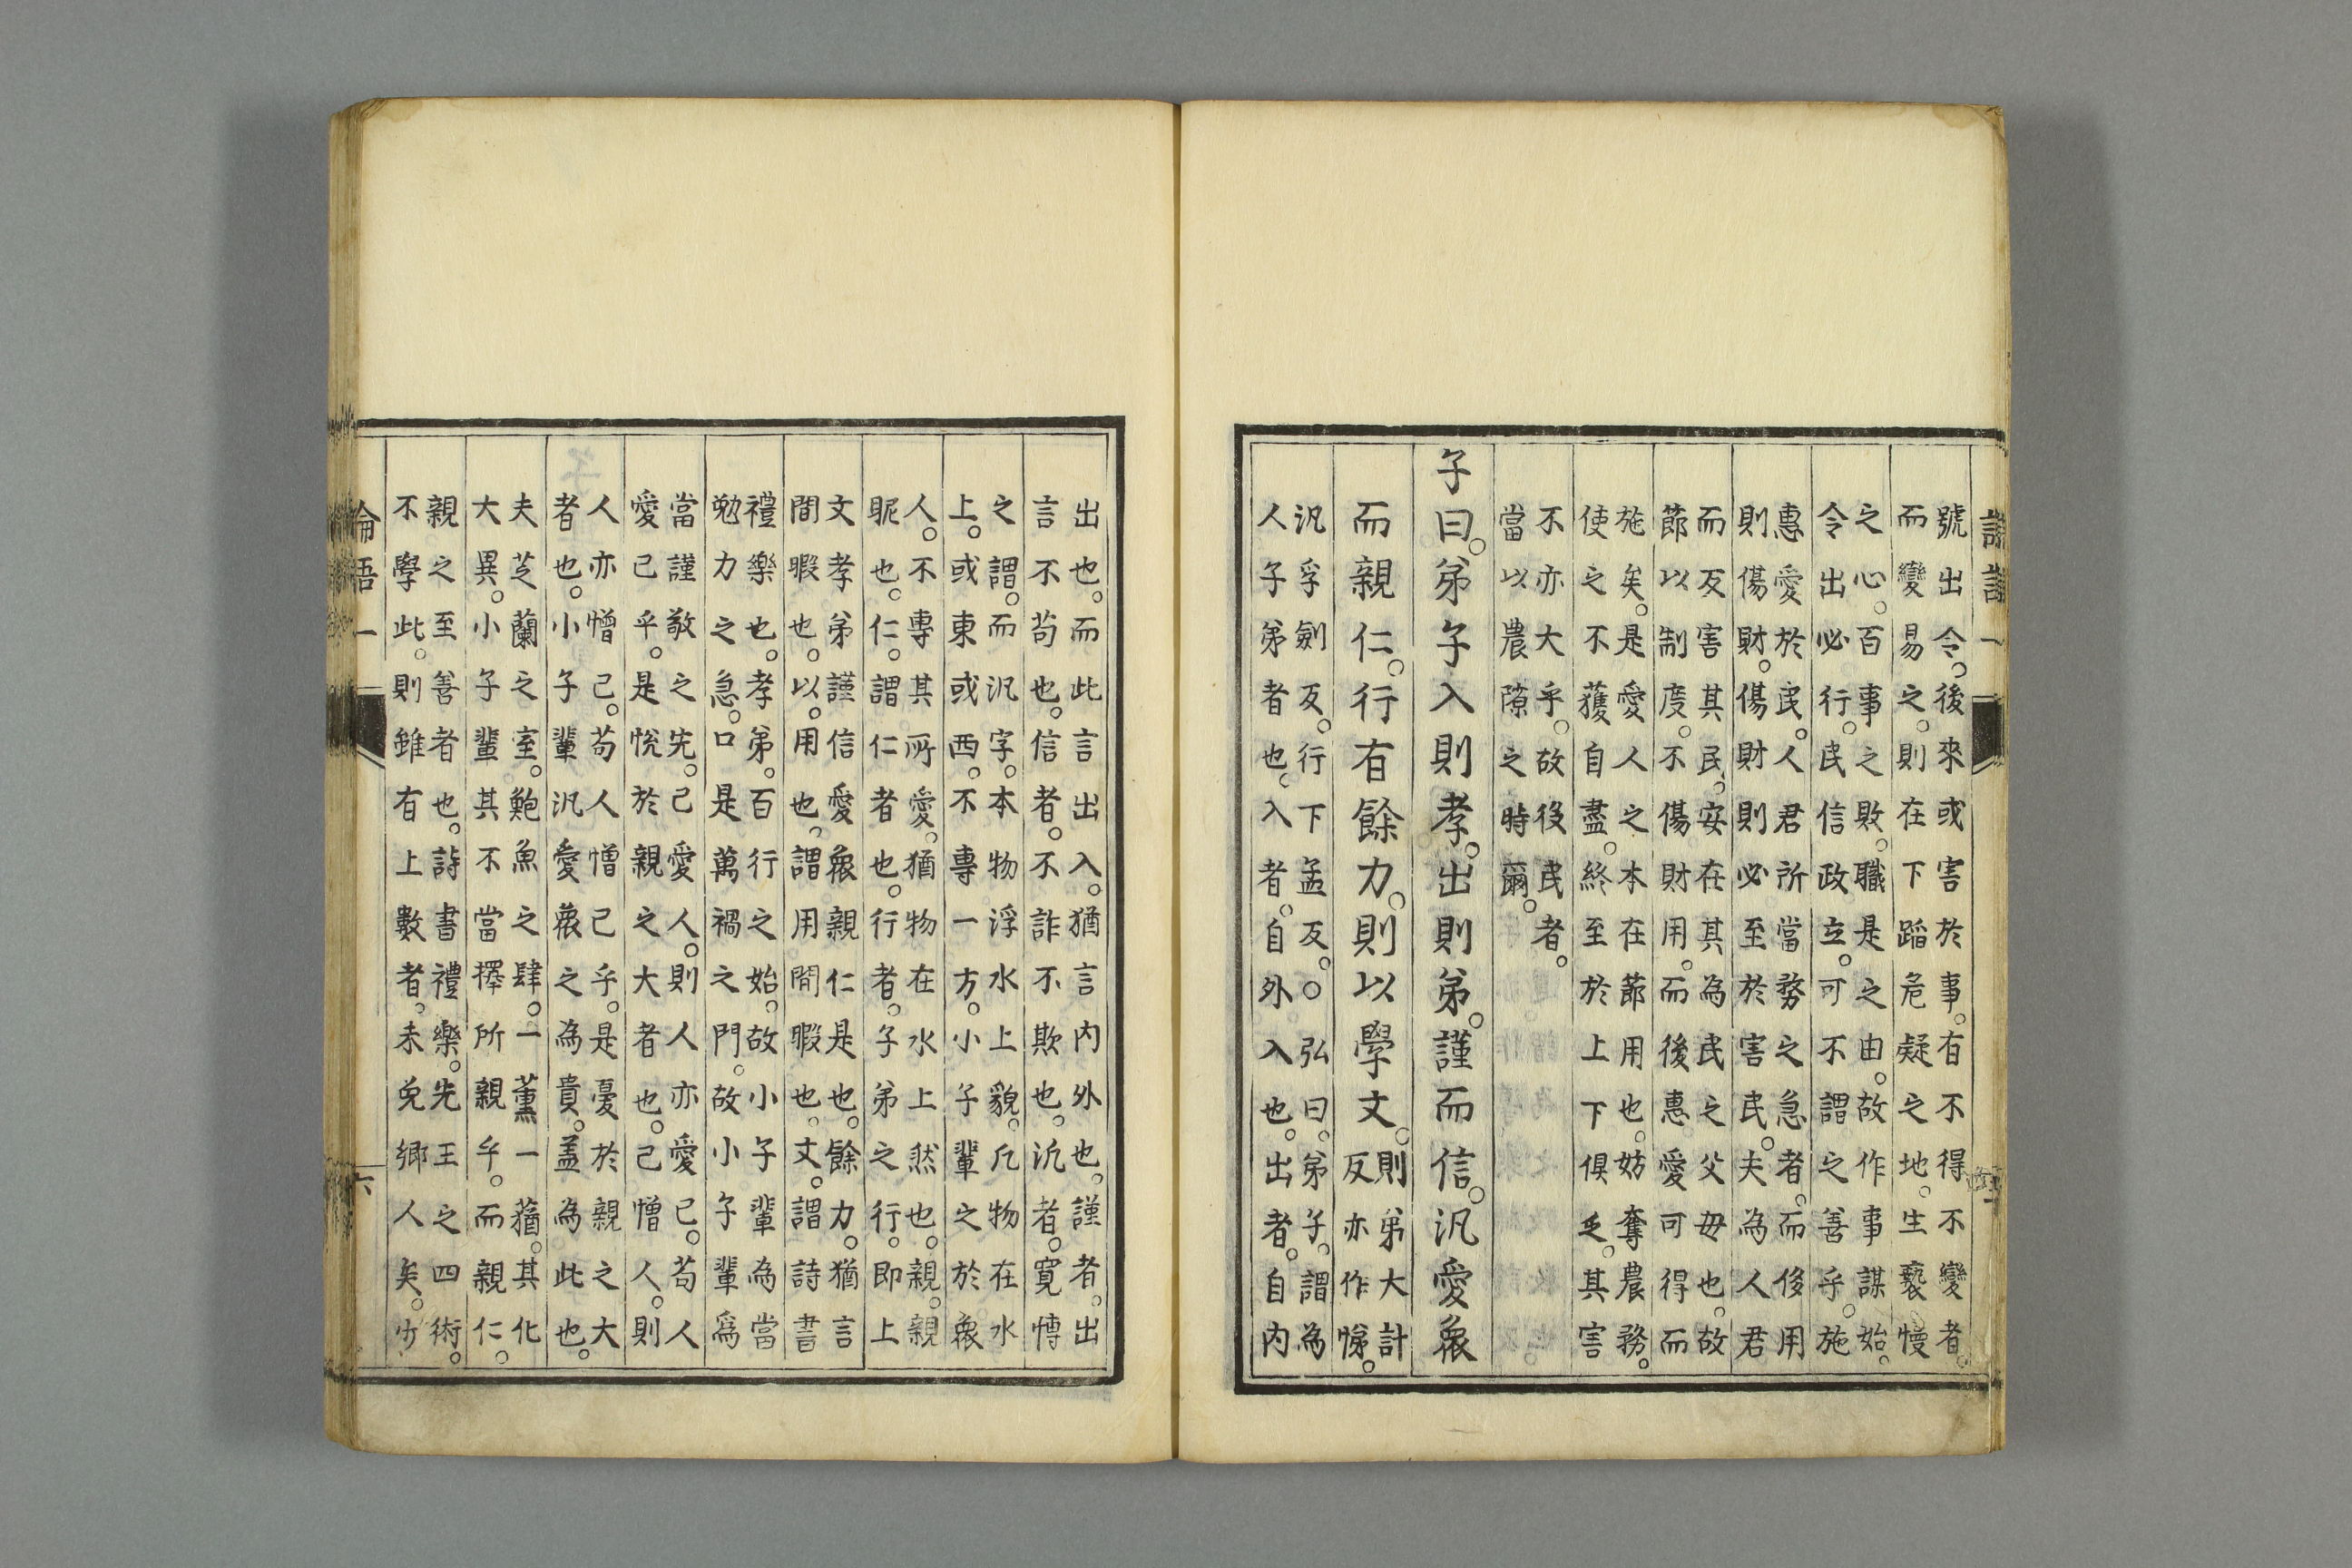 號出令。後來或害於事。有不得不變者。
而變易之。則在下蹈危疑之地。生褻慢
之心。百事之敗。職是之由。故作事謀始。
令出必行。民信政立。可不謂之善乎。施
惠愛於民。人君所當務之急者。而侈用
則傷財。傷財則必至於害民。夫為人君
而反害其民。安在其為民之父毋也。故
節以制度。不傷財用。而後惠愛可得而
施矣。是愛人之本在節用也。妨奪農務。
使之不獲自盡。終至於上下俱乏。其害
不亦大乎。故役民者。
當以農隙之時爾。
子曰。弟子入則孝。出則弟。謹而信。汎愛衆
而親仁。行有餘力。則以學文。
則弟大計
反亦作悌。
汎孚劍反。行下孟反。○弘曰。弟子。謂為
人子弟者也。入者。自外入也。出者。自內
出也。而此言出入。猶言內外也。謹者。出
言不苟也。信者。不詐不欺也。汎者。寬博
之謂。而汎字。本物浮水上貌。凡物在水
上。或東或西。不專一方。小子輩之於衆
人。不專其所愛。猶物在水上然也。親。親
昵也。仁。謂仁者也。行者。子弟之行。即上
文孝弟謹信愛衆親仁是也。餘力。猶言
間暇也。以。用也。謂用間暇也。文。謂詩書
禮樂也。孝弟。百行之始。故小子輩為當
勉力之急。口是萬禍之門。故小子輩爲
當謹敬之先。己愛人。則人亦愛己。苟人
愛己乎。是悅於親之大者也。己憎人。則
人亦憎己。苟人憎己乎。是憂於親之大
者也。小子輩汎愛衆之為貴。蓋為此也。
夫芝蘭之室。鮑魚之肆。一薰一蕕。其化
大異。小子輩其不當擇所親乎。而親仁。
親之至善者也。詩書禮樂。先王之四術。
不學此。則雖有上數者。未免鄉人矣。少
論語一
六